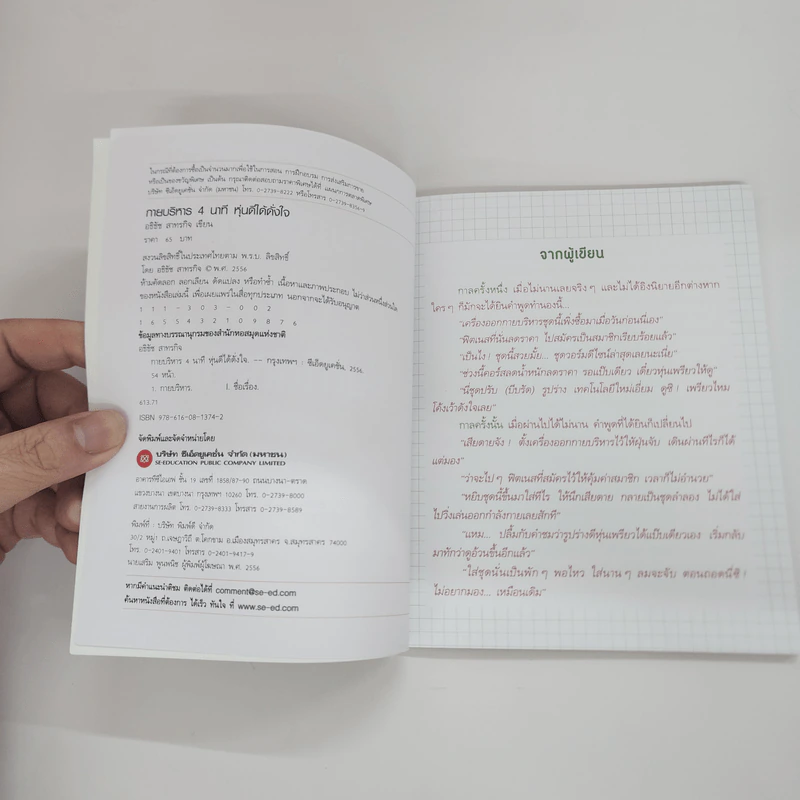 ในกรณีที่ต้องการซื้อเป็นจำนวนมากเพื่อใช้ในการสอน การฝึกอบรม การส่งเสริมการขาย
หรือเป็นของขวัญพิเศษ เป็นต้น กรุณาติดต่อสอบถามราคาพิเศษได้ที่ แผนกการตลาดพิเศษ
บริษัท ซีเอ็ดยูเคชั่น จำกัด (มหาชน) โทร. 0-2739-8222 หรือโทรสาร 0-2739-8356-9
กายบริหาร 4 นาที หุ่นดีได้ดั่งใจ
อธิธัช สาทรกิจ เขียน
ราคา 65 บาท
สงวนลิขสิทธิ์ในประเทศไทยตาม พ.ร.บ. ลิขสิทธิ์
โดย อธิธัช สาทรกิจ © พ.ศ. 2556
ห้ามคัดลอก ลอกเลียน ดัดแปลง หรือทำซ้ำ เนื้อหาและภาพประกอบ ไม่ว่าส่วนหนึ่งส่วนใด
ของหนังสือเล่มนี้ เพื่อเผยแพร่ในสื่อทุกประเภท นอกจากจะได้รับอนุญาต
1 1 1 - 3 0 3 - 0 0 2
1 6 5 5 4 3 2 1 0 9 8 7 6
ข้อมูลทางบรรณานุกรมของสำนักหอสมุดแห่งชาติ
อธิธัช สาทรกิจ
กายบริหาร 4 นาที หุ่นดีได้ดั่งใจ. -- กรุงเทพฯ : ซีเอ็ดยูเคชั่น, 2556.
54 หน้า.
1. กายบริหาร. I. ชื่อเรื่อง.
613.71
ISBN 978-616-08-1374-2
จัดพิมพ์และจัดจำหน่ายโดย
บริษัท ซีเอ็ดยูเคชั่น จำกัด (มหาชน)
SE-EDUCATION PUBLIC COMPANY LIMITED
อาคารทีซีไอเอฟ ชั้น 19 เลขที่ 1858/87-90 ถนนบางนา-ตราด
แขวงบางนา เขตบางนา กรุงเทพฯ 10260 โทร. 0-2739-8000
สายงานการผลิต โทร. 0-2739-8333 โทรสาร 0-2739-8589
พิมพ์ที่ : บริษัท พิมพ์ดี จำกัด
30/2 หมู่1 ถ.เจษฎาวิถี ต.โคกขาม อ.เมืองสมุทรสาคร จ.สมุทรสาคร 74000
โทร. 0-2401-9401 โทรสาร 0-2401-9417-9
นายเสริม พูนพนิช ผู้พิมพ์ผู้โฆษณา พ.ศ. 2556
หากมีคำแนะนำติชม ติดต่อได้ที่ comment@se-ed.com
ค้นหาหนังสือที่ต้องการ ได้เร็ว ทันใจ ที่ www.se-ed.com
จากผู้เขียน
กาลครั้งหนึ่ง เมื่อไม่นานเลยจริงๆ และไม่ได้อิงนิยายอีกต่างหาก
ใครๆ ก็มักจะได้ยินคำพูดทำนองนี้...
"เครื่องออกกายบริหารชุดนี้เพิ่งซื้อมาเมื่อวันก่อนนี่เอง"
"ฟิตเนสที่นั่นลดราคา ไปสมัครเป็นสมาชิกเรียบร้อยแล้ว"
"เป็นไง! ชุดนี้สวยมั้ย... ชุดวอร์มดีไซน์ล่าสุดเลยนะเนี่ย"
"ช่วงนี้คอร์สลดน้ำหนักลดราคา รอแป๊บเดียว เดี๋ยวหุ่นเพรียวให้ดู"
"นี่ชุดปรับ (บีบรัด) รูปร่าง เทคโนโลยีใหม่เอี่ยม ดูซิ ! เพรียวไหม
โค้งเว้าดั่งใจเลย"
กาลครั้งนั้น เมื่อผ่านไปได้ไม่นาน คำพูดที่ได้ยินก็เปลี่ยนไป
"เสียดายจัง ! ตั้งเครื่องออกกายบริหารไว้ให้ฝุ่นจับ เดินผ่านทีไรก็ได้
แต่มอง"
"ว่าจะไปๆ ฟิตเนสที่สมัครไว้ให้คุ้มค่าสมาชิก เวลาก็ไม่อำนวย"
"หยิบชุดนี้ขึ้นมาใส่ทีไร ให้นึกเสียดาย กลายเป็นชุดลำลอง ไม่ได้ใส่
ไปวิ่งเล่นออกกำลังกายเลยสักที"
"แหม... ปลื้มกับคำชมว่ารูปร่างดีหุ่นเพรียวได้แป๊บเดียวเอง เริ่มกลับ
มาทักว่าดูอ้วนขึ้นอีกแล้ว"
"ใส่ชุดนั่นเป็นพักๆ พอไหว ใส่นานๆ ลมจะจับ ตอนถอดนี่ซิ !
ไม่อยากมอง... เหมือนเดิม"